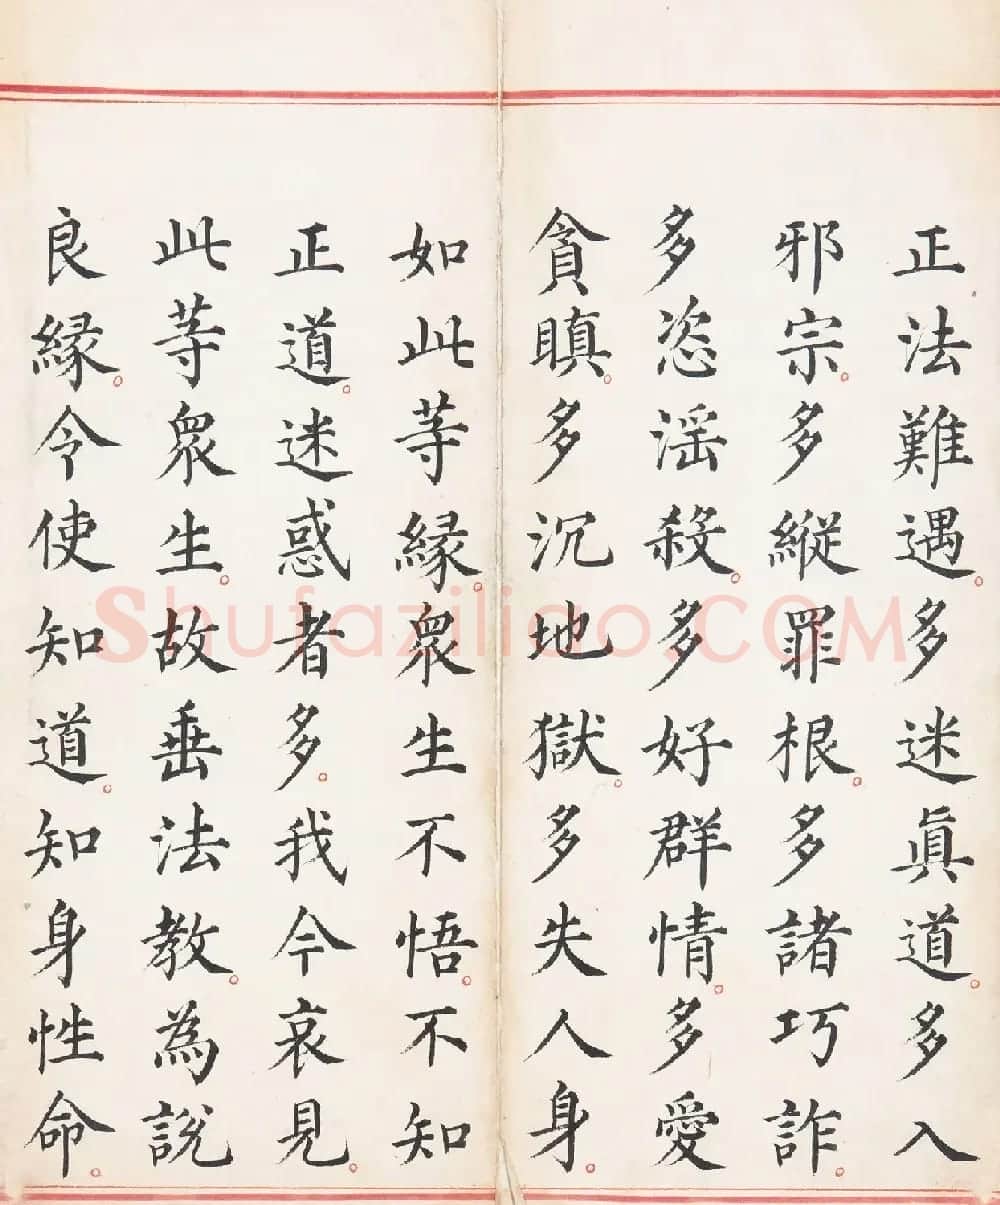 正法難遇。多迷眞道。多入
邪宗。多縱罪根。多諸巧詐。
多恣淫殺。多好群情。多愛
貪瞋。多沉地獄。多失人身。
如此等緣。衆生不悟。不知
正道。迷惑者多。我今哀見。
此等衆生。故垂法教。為說
良緣。令使知道。知身性命。
Shufaziliao.COM